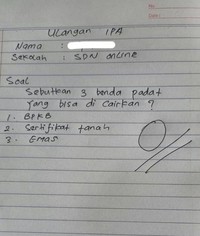 Ulangan IPA
Nama :
Sekolah : SDN online
Soal
Sebutkan 3 benda padat
yang bisa di cairkan ?
1. BPKB
2. Sertifikat tanah
3. Emas